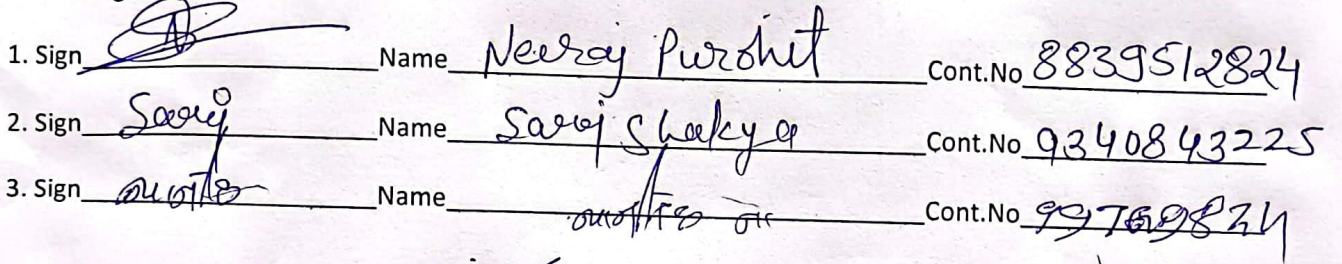 1. Sign Name Neeraj Purohit Cont.No 8839512824
2. Sign Saroj Name Saroj Shakya Cont.No 9340843225
3. Sign Name Cont.No